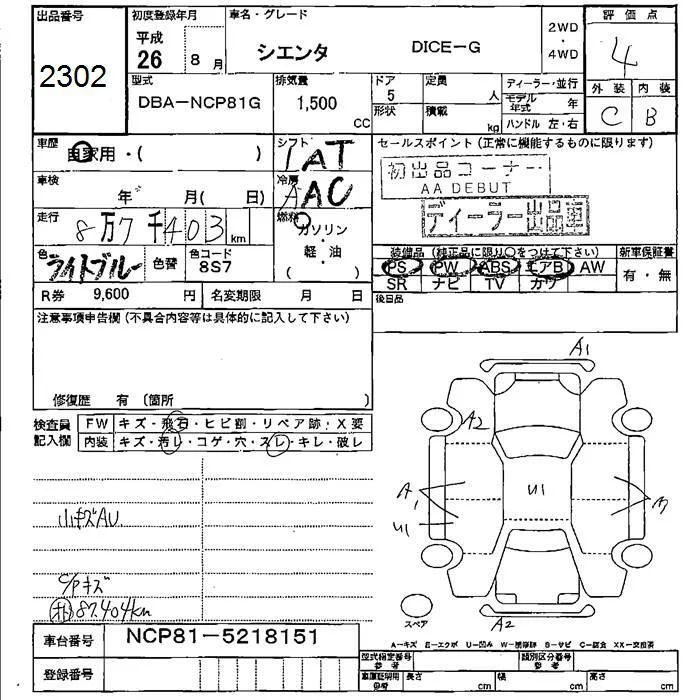 出品番号
2302
初度登録年月
平成
26 8 月
車名・グレード
シエンタ DICE-G
2WD
・
4WD
評価点
4
外装 内装
C B
型式
DBA-NCP81G
排気量
1,500
CC
ドア
5
定員
人
形状
積載
kg
ディーラー・並行
モデル年式 年
ハンドル 左・右
車歴
自家用・( )
シフト
IAT
車検
年 月( 日)
冷房
AAC
走行
8万7千403km
燃料
ガソリン
・
軽・油
( )
色
ライトブルー
色替
色コード
8S7
R券 9,600 円
名変期限 月 日
セールスポイント (正常に機能するものに限ります)
初出品コーナー
AA DEBUT
ディーラー出品車
装備品 (純正品に限り○をつけて下さい)
PS PW ABS エアB AW
SR ナビ TV カワ
新車保証書
有・無
後日品
注意事項申告欄 (不具合内容等は具体的に記入して下さい)
修復歴 有 〔箇所 〕
検査員
記入欄
FW キズ・飛石・ヒビ割・リペア跡・X要
内装 キズ・汚レ・コゲ・穴・スレ・キレ・破レ
小キズAU
C/Pキズ
87.404km
A1
A2
A1
U1
U1
A2
スペア
車台番号 NCP81-5218151
登録番号
A-キズ E-エクボ U-凹み W-補修跡 S-サビ C-腐食 XX-交換済
型式指定番号
参考
類別区分番号
参考
車庫証明用
参考
長さ cm
幅 cm
高さ cm